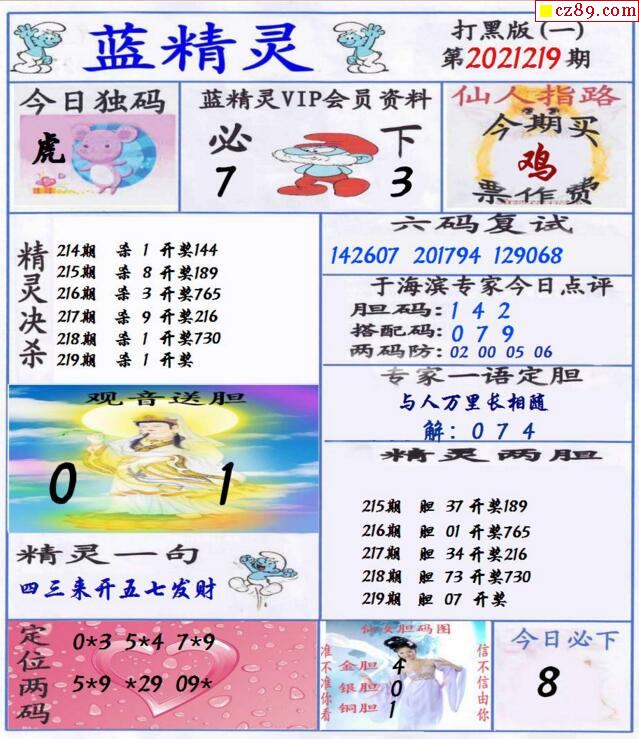 cz89.com
蓝精灵
打黑版(一)
第2021219期
今日独码
虎
蓝精灵VIP会员资料
必 下
7 3
仙人指路
今期买
鸡
票作费
精灵决杀
214期 杀 1 开奖144
215期 杀 8 开奖189
216期 杀 3 开奖765
217期 杀 9 开奖216
218期 杀 1 开奖730
219期 杀 1 开奖
六码复试
142607 201794 129068
于海滨专家今日点评
胆码: 1 4 2
搭配码: 0 7 9
两码防: 02 00 05 06
专家一语定胆
与人万里长相随
解: 0 7 4
观音送胆
0 1
精灵两胆
215期 胆 37 开奖189
216期 胆 01 开奖765
217期 胆 34 开奖216
218期 胆 73 开奖730
219期 胆 07 开奖
精灵一句
四三来开五七发财
定位两码
0*3 5*4 7*9
5*9 *29 09*
仙女胆码图
准不准你看
金胆 4
银胆 0
铜胆 1
信不信由你
今日必下
8